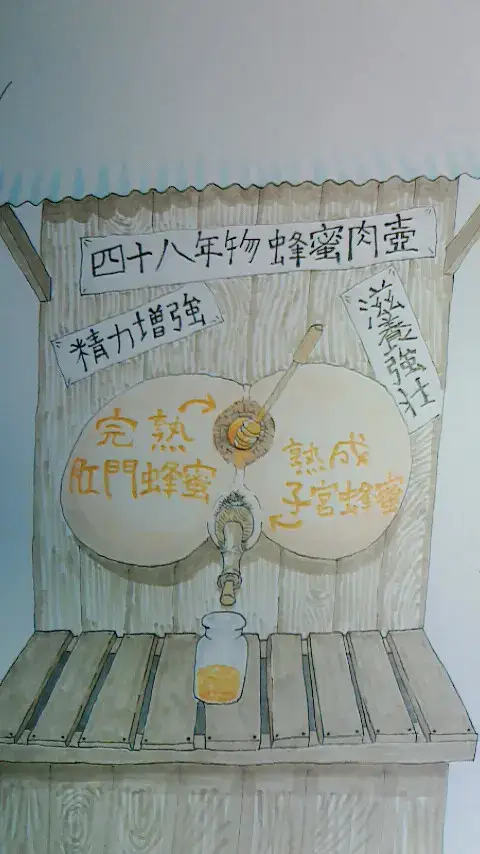 四十八年物蜂蜜肉壺
精力増強
滋養強壮
完熟
肛門蜂蜜
熟成
子宮蜂蜜